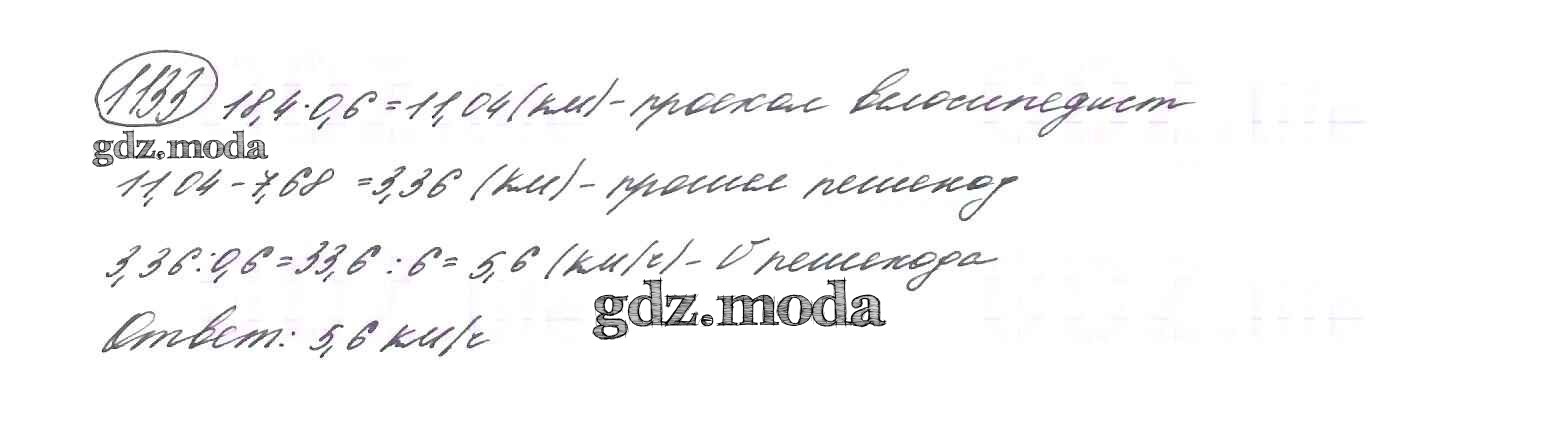 1133 18,4·0,6=11,04(км)-проехал велосипедист
gdz.moda
11,04-7,68 =3,36 (км)- прошел пешеход
3,36:0,6=33,6:6= 5,6 (км/ч)- V пешехода
gdz.moda
Ответ: 5,6 км/ч